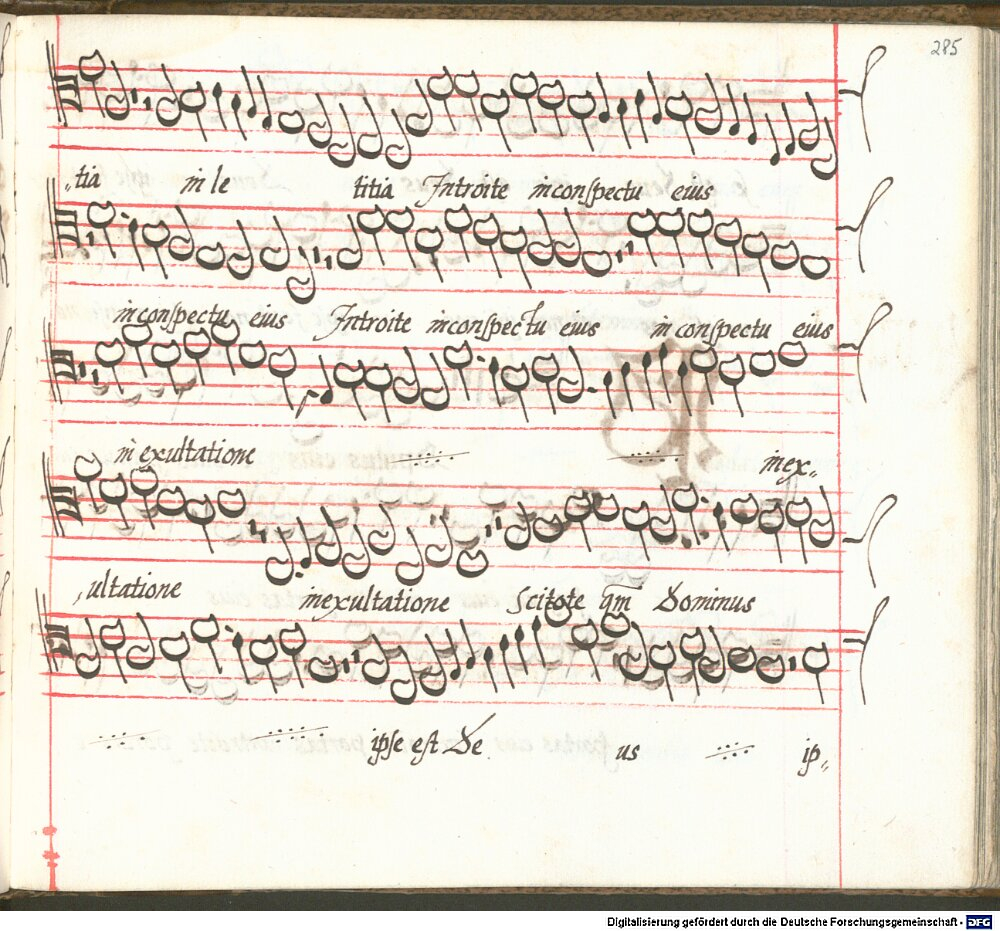 285
„tia in le titia Introite inconſpectu eius
inconſpectu eius Introite inconſpectu eius in conſpectu eius
in exultatione inex„
„ultatione inexultatione Scitote qm̅ Dominus
ipſe eſt De us ip„
Digitalisierung gefördert durch die Deutsche Forschungsgemeinschaft - DFG